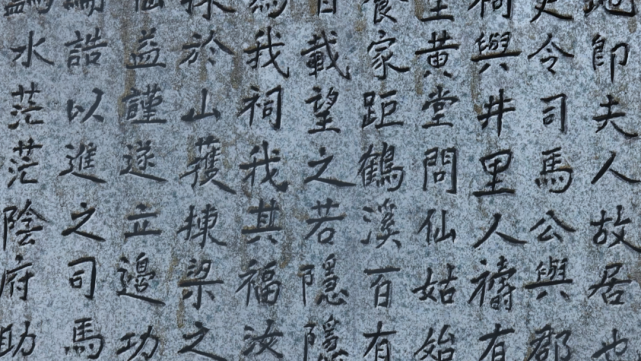 即夫人故居也
史令司馬公與郡
祠與井里人禱有
黃堂問仙姑始
養家距鶴溪百有
載望之若隱隱
為我祠我其福汝
於山獲揀梁之
益謹遂立邊功
誥以進之司馬
水茫茫陰府助